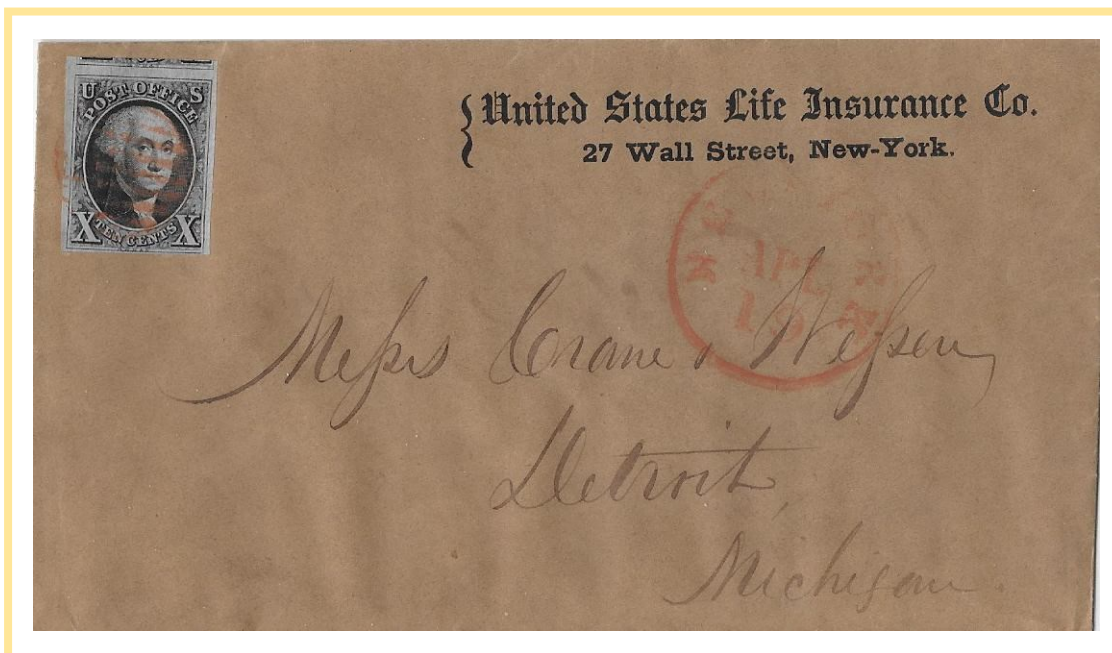 U S
POST OFFICE
X TEN CENTS X
United States Life Insurance Co.
27 Wall Street, New-York.
NEW YORK
APL
19
Messrs Crane & Wesson
Detroit,
Michigan.